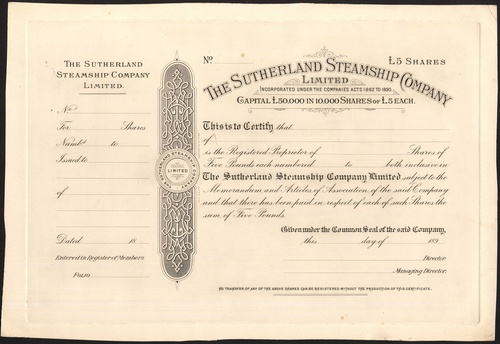 The Sutherland
Steamship Company
Limited.
No.
For Shares
Numbd. to
Issued to
of
Dated 18
Entered in Register of Members
Folio
SUTHERLAND STEAMSHIP COMPANY
LIMITED
No. £5 Shares
The Sutherland Steamship Company
Limited
Incorporated under the Companies Acts 1862 to 1890.
Capital £50,000 in 10,000 Shares of £5 each.
This is to Certify that
of
is the Registered Proprietor of Shares of
Five Pounds each numbered to both inclusive in
The Sutherland Steamship Company Limited subject to the
Memorandum and Articles of Association of the said Company
and that there has been paid in respect of each of such Shares the
sum of Five Pounds.
Given under the Common Seal of the said Company,
this day of 189
Director
Managing Director.
No transfer of any of the above shares can be registered without the production of this certificate.